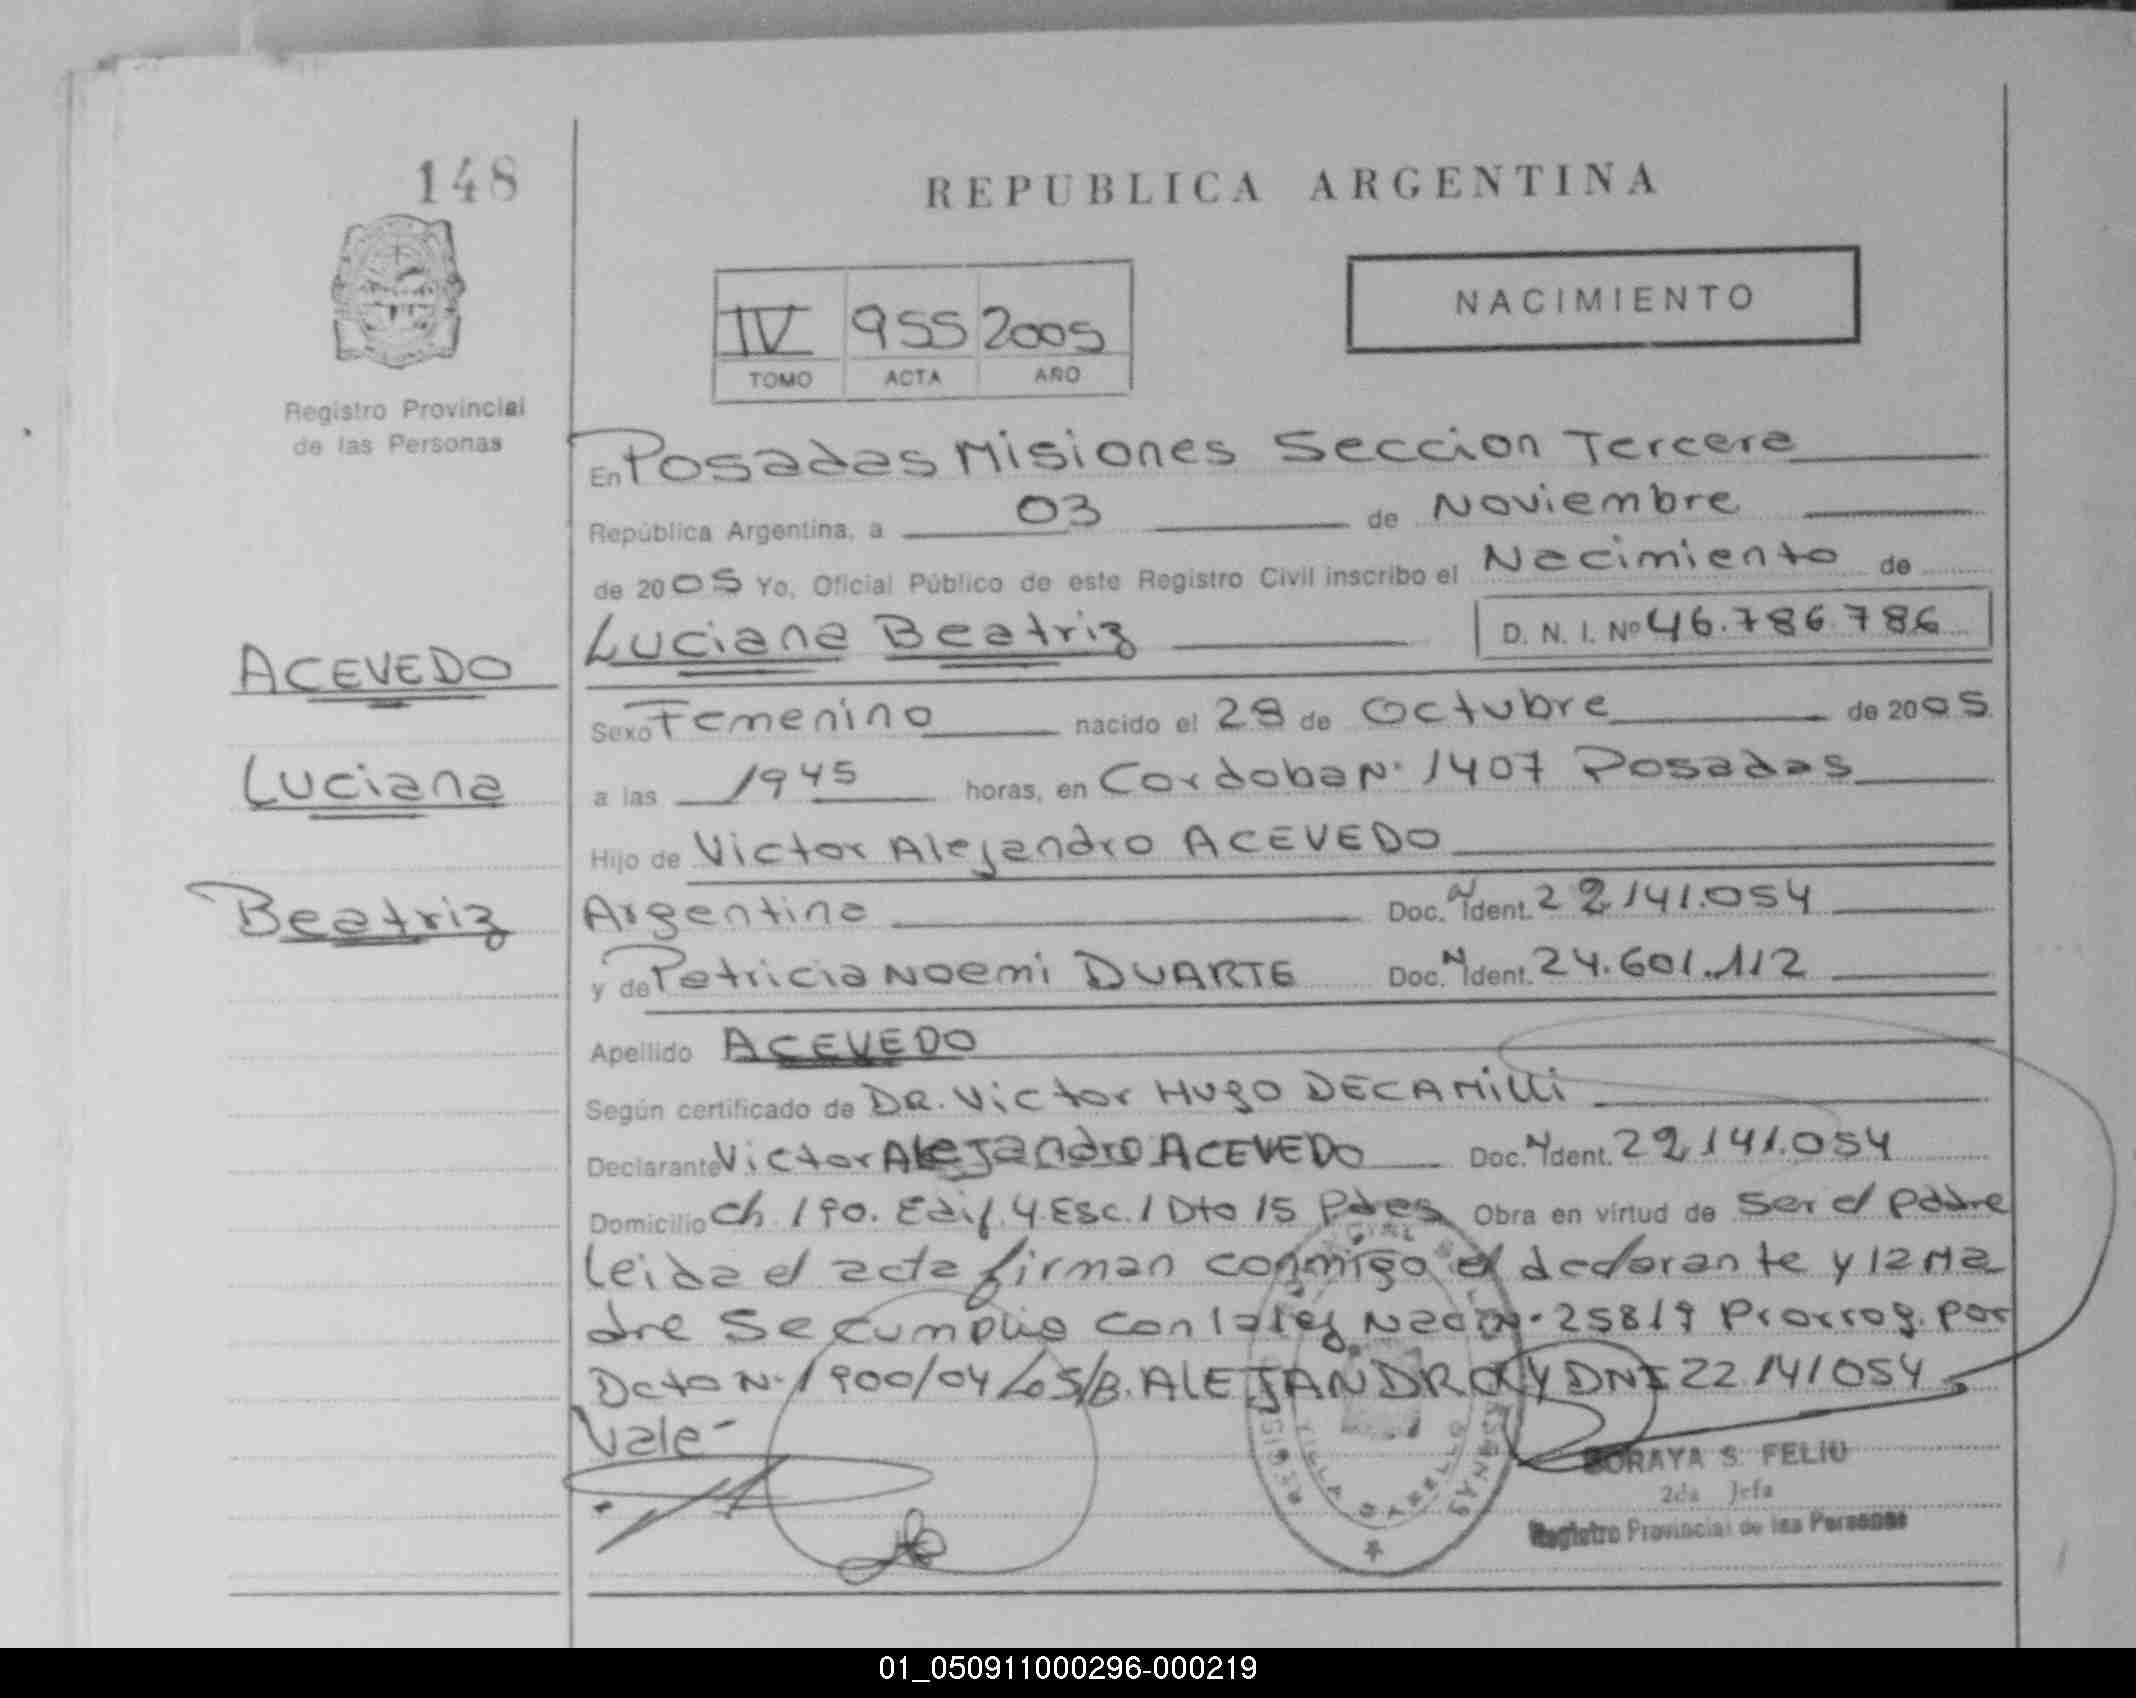 148
REPUBLICA ARGENTINA
IV 955 2005
TOMO ACTA AÑO
NACIMIENTO
Registro Provincial
de las Personas
En Posadas Misiones Seccion Tercera
República Argentina, a 03 de Noviembre
de 2005 Yo, Oficial Público de este Registro Civil inscribo el Nacimiento de
Luciana Beatriz D. N. I. Nº 46.786.786
ACEVEDO
Sexo Femenino nacido el 28 de Octubre de 2005
Luciana
a las 19 45 horas, en Cordoba Nº 1407 Posadas
Hijo de Victor Alejandro ACEVEDO
Beatriz
Argentina Doc. N Ident. 22.141.054
y de Patricia Noemi DUARTE Doc. N Ident. 24.601.112
Apellido ACEVEDO
Según certificado de DR. Victor Hugo DECAMILLI
Declarante Victor Alejandro ACEVEDO Doc. N Ident. 22.141.054
Domicilio Ch. 190. Edif. 4 Esc. 1 Dto 15 Pdas Obra en virtud de Ser el padre
Leida el acta firman conmigo el declarante y la Ma
dre Se cumplio con la ley Nacion. 25819 Prorrog. por
Dcto Nº 1900/04 S/B. ALEJANDRO Y DNI 22141054
Vale-
SORAYA S. FELIU
2da Jefa
Registro Provincial de las Personas
01_050911000296-000219